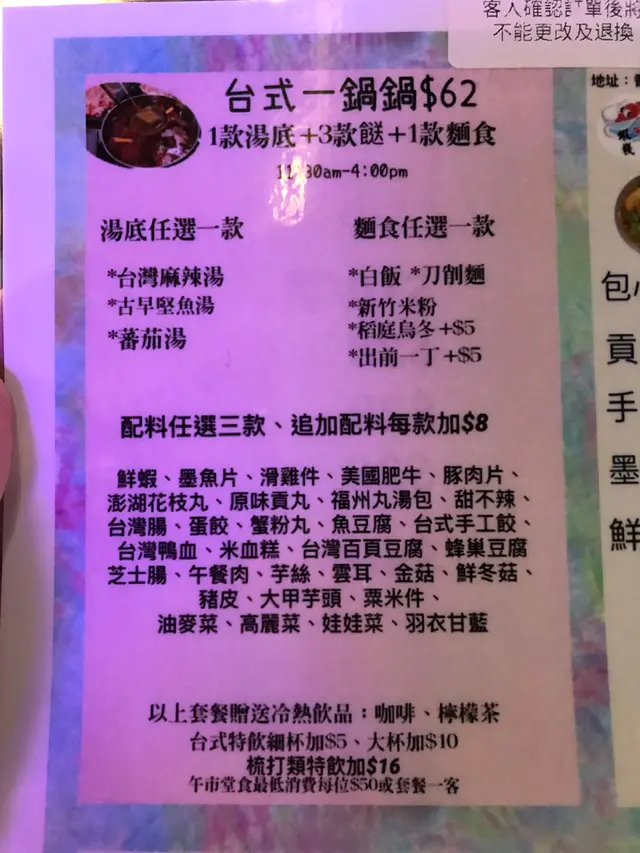 客人確認訂單後將
不能更改及退換
地址：
台式一鍋鍋$62
1款湯底+3款餸+1款麵食
11:30am-4:00pm
湯底任選一款
麵食任選一款
*台灣麻辣湯
*白飯 *刀削麵
*古早堅魚湯
*新竹米粉
*蕃茄湯
*稻庭烏冬+$5
*出前一丁+$5
配料任選三款、追加配料每款加$8
鮮蝦、墨魚片、滑雞件、美國肥牛、豚肉片、
澎湖花枝丸、原味貢丸、福州丸湯包、甜不辣、
台灣腸、蛋餃、蟹粉丸、魚豆腐、台式手工餃、
台灣鴨血、米血糕、台灣百頁豆腐、蜂巢豆腐
芝士腸、午餐肉、芋絲、雲耳、金菇、鮮冬菇、
豬皮、大甲芋頭、粟米件、
油麥菜、高麗菜、娃娃菜、羽衣甘藍
以上套餐贈送冷熱飲品；咖啡、檸檬茶
台式特飲細杯加$5、大杯加$10
梳打類特飲加$16
午市堂食最低消費每位$50或套餐一客
包
貢
手
墨
鮮